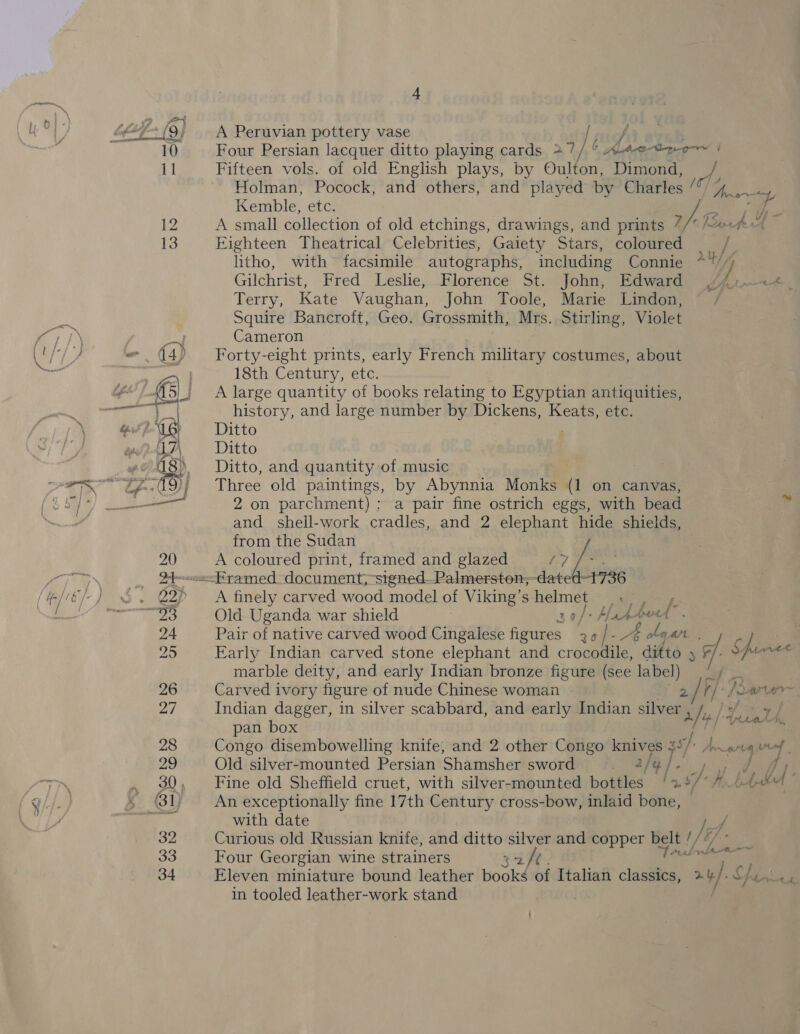 4
(9) A Peruvian pottery vase
10 Four Persian lacquer ditto playing cards 27/6
11 Fifteen vols. of old English plays, by Oulton, Dimond,
Holman, Pocock, and others, and played by Charles
Kemble, etc.
12 A small collection of old etchings, drawings, and prints
13 Eighteen Theatrical Celebrities, Gaiety Stars, coloured
litho, with facsimile autographs, including Connie
Gilchrist, Fred Leslie, Florence St. John, Edward
Terry, Kate Vaughan, John Toole, Marie Lindon,
Squire Bancroft, Geo. Grossmith, Mrs. Stirling, Violet
Cameron
(14) Forty-eight prints, early French military costumes, about
18th Century, etc.
(15) A large quantity of books relating to Egyptian antiquities,
history, and large number by Dickens, Keats, etc.
(16) Ditto
(17) Ditto
(18) Ditto, and quantity of music
(19) Three old paintings, by Abynnia Monks (1 on canvas,
2 on parchment); a pair fine ostrich eggs, with bead
and shell-work cradles, and 2 elephant hide shields,
from the Sudan
20 A coloured print, framed and glazed 17/-
21 Framed document, signed Palmerston, dated 1736
(22) A finely carved wood model of Viking's helmet
23 Old Uganda war shield 30/-
24 Pair of native carved wood Cingalese figures 30/-
25 Early Indian carved stone elephant and crocodile, ditto
marble deity, and early Indian bronze figure (see label)
26 Carved ivory figure of nude Chinese woman
27 Indian dagger, in silver scabbard, and early Indian silver
pan box
28 Congo disembowelling knife, and 2 other Congo knives
29 Old silver-mounted Persian Shamsher sword
30 Fine old Sheffield cruet, with silver-mounted bottles
(31) An exceptionally fine 17th Century cross-bow, inlaid bone,
with date
32 Curious old Russian knife, and ditto silver and copper belt
33 Four Georgian wine strainers
34 Eleven miniature bound leather books of Italian classics,
in tooled leather-work stand